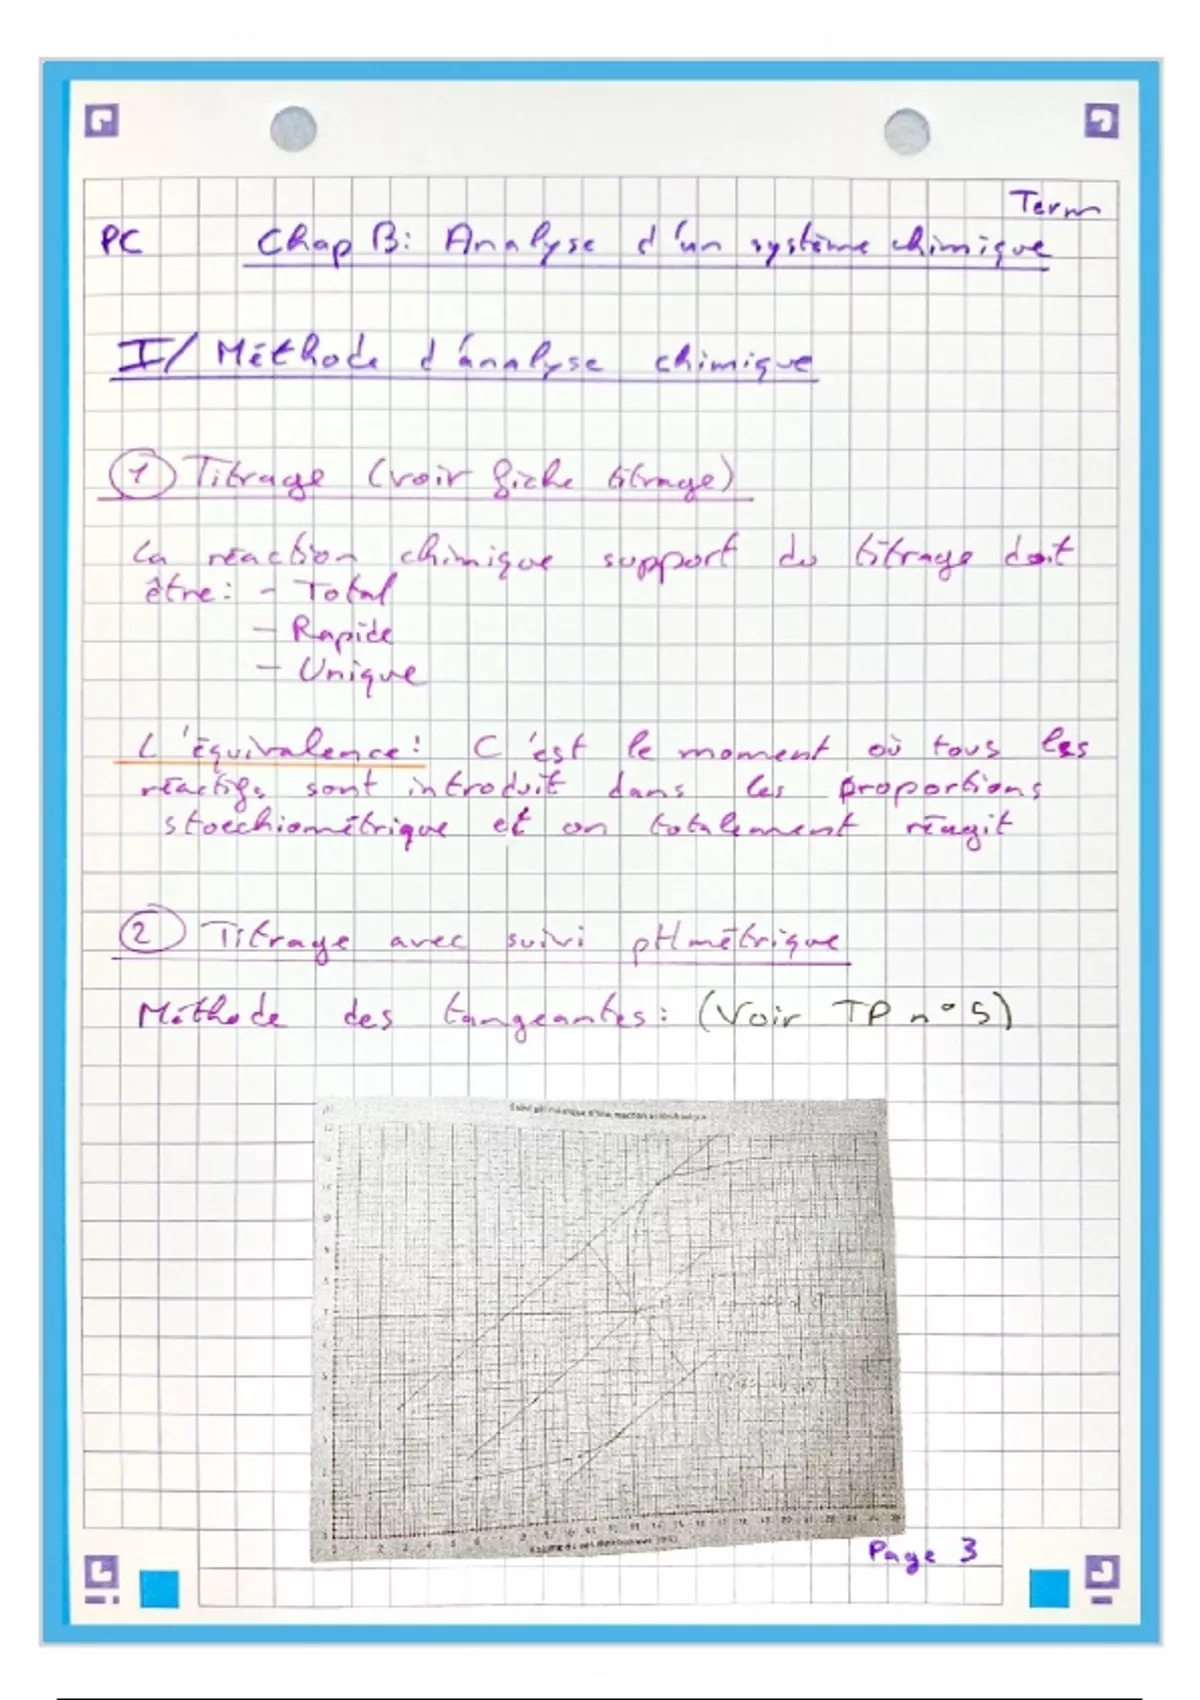 Term
PC Chap B: Analyse d'un système chimique
I/ Méthode d'analyse chimique
1 Titrage (voir fiche titrage)
La réaction chimique support du titrage doit
être: - Total
- Rapide
- Unique
L'équivalence: C'est le moment où tous les
réactifs sont introduit dans les proportions
stoechiométrique et on totalement réagit
2 Titrage avec suivi pHmétrique
Méthode des tangeantes: (Voir TP n°5)
Page 3